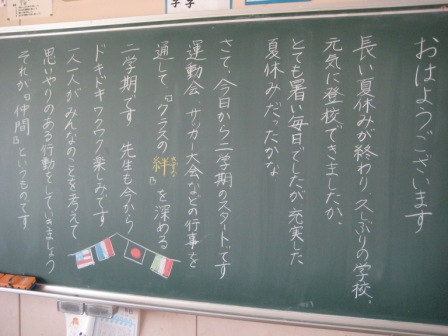 おはようございます
長い夏休みが終わり 久しぶりの学校、
元気に登校できましたか。
とても暑い毎日でしたが、充実した
夏休みだったかな
さて、今日から二学期のスタートです
運動会、サッカー大会などの行事を
通して、『クラスの絆』を深める
きずな
二学期です 先生も今から
ドキドキワクワク 楽しみです
一人一人がみんなのことを考えて
思いやりのある行動をしていきましょう
それが『仲間』というものです